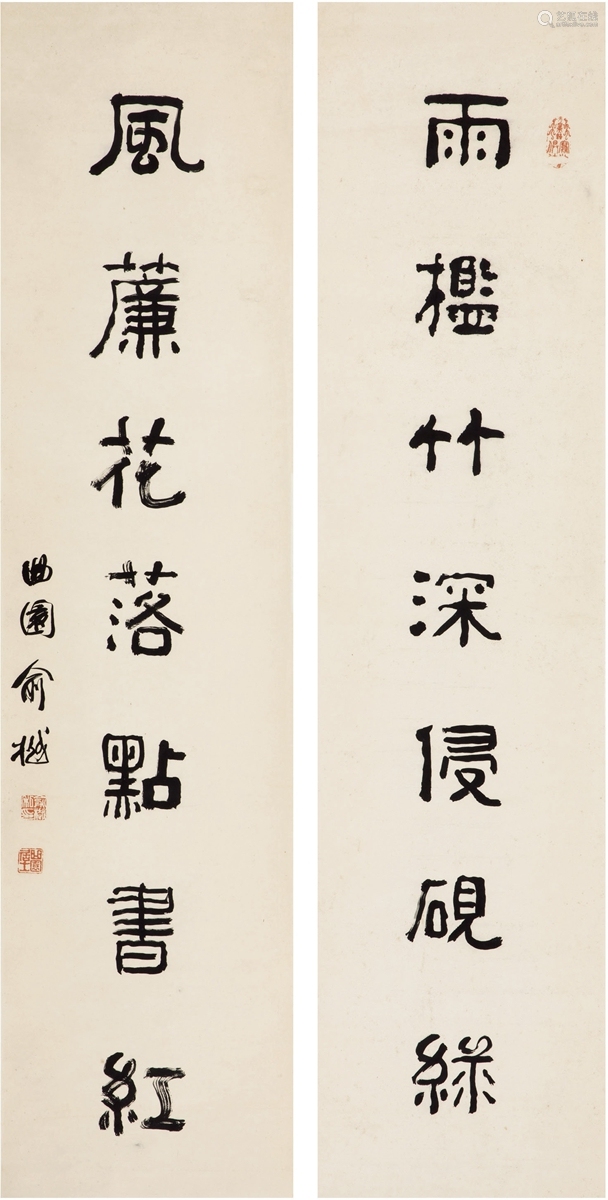 雨檻竹深侵硯綠
風簾花落點書紅
曲園俞樾